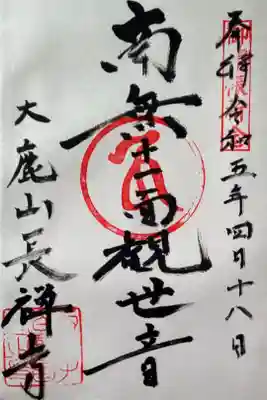 奉拝 令和五年四月十八日
南無十一面観世音
大鹿山長禅寺